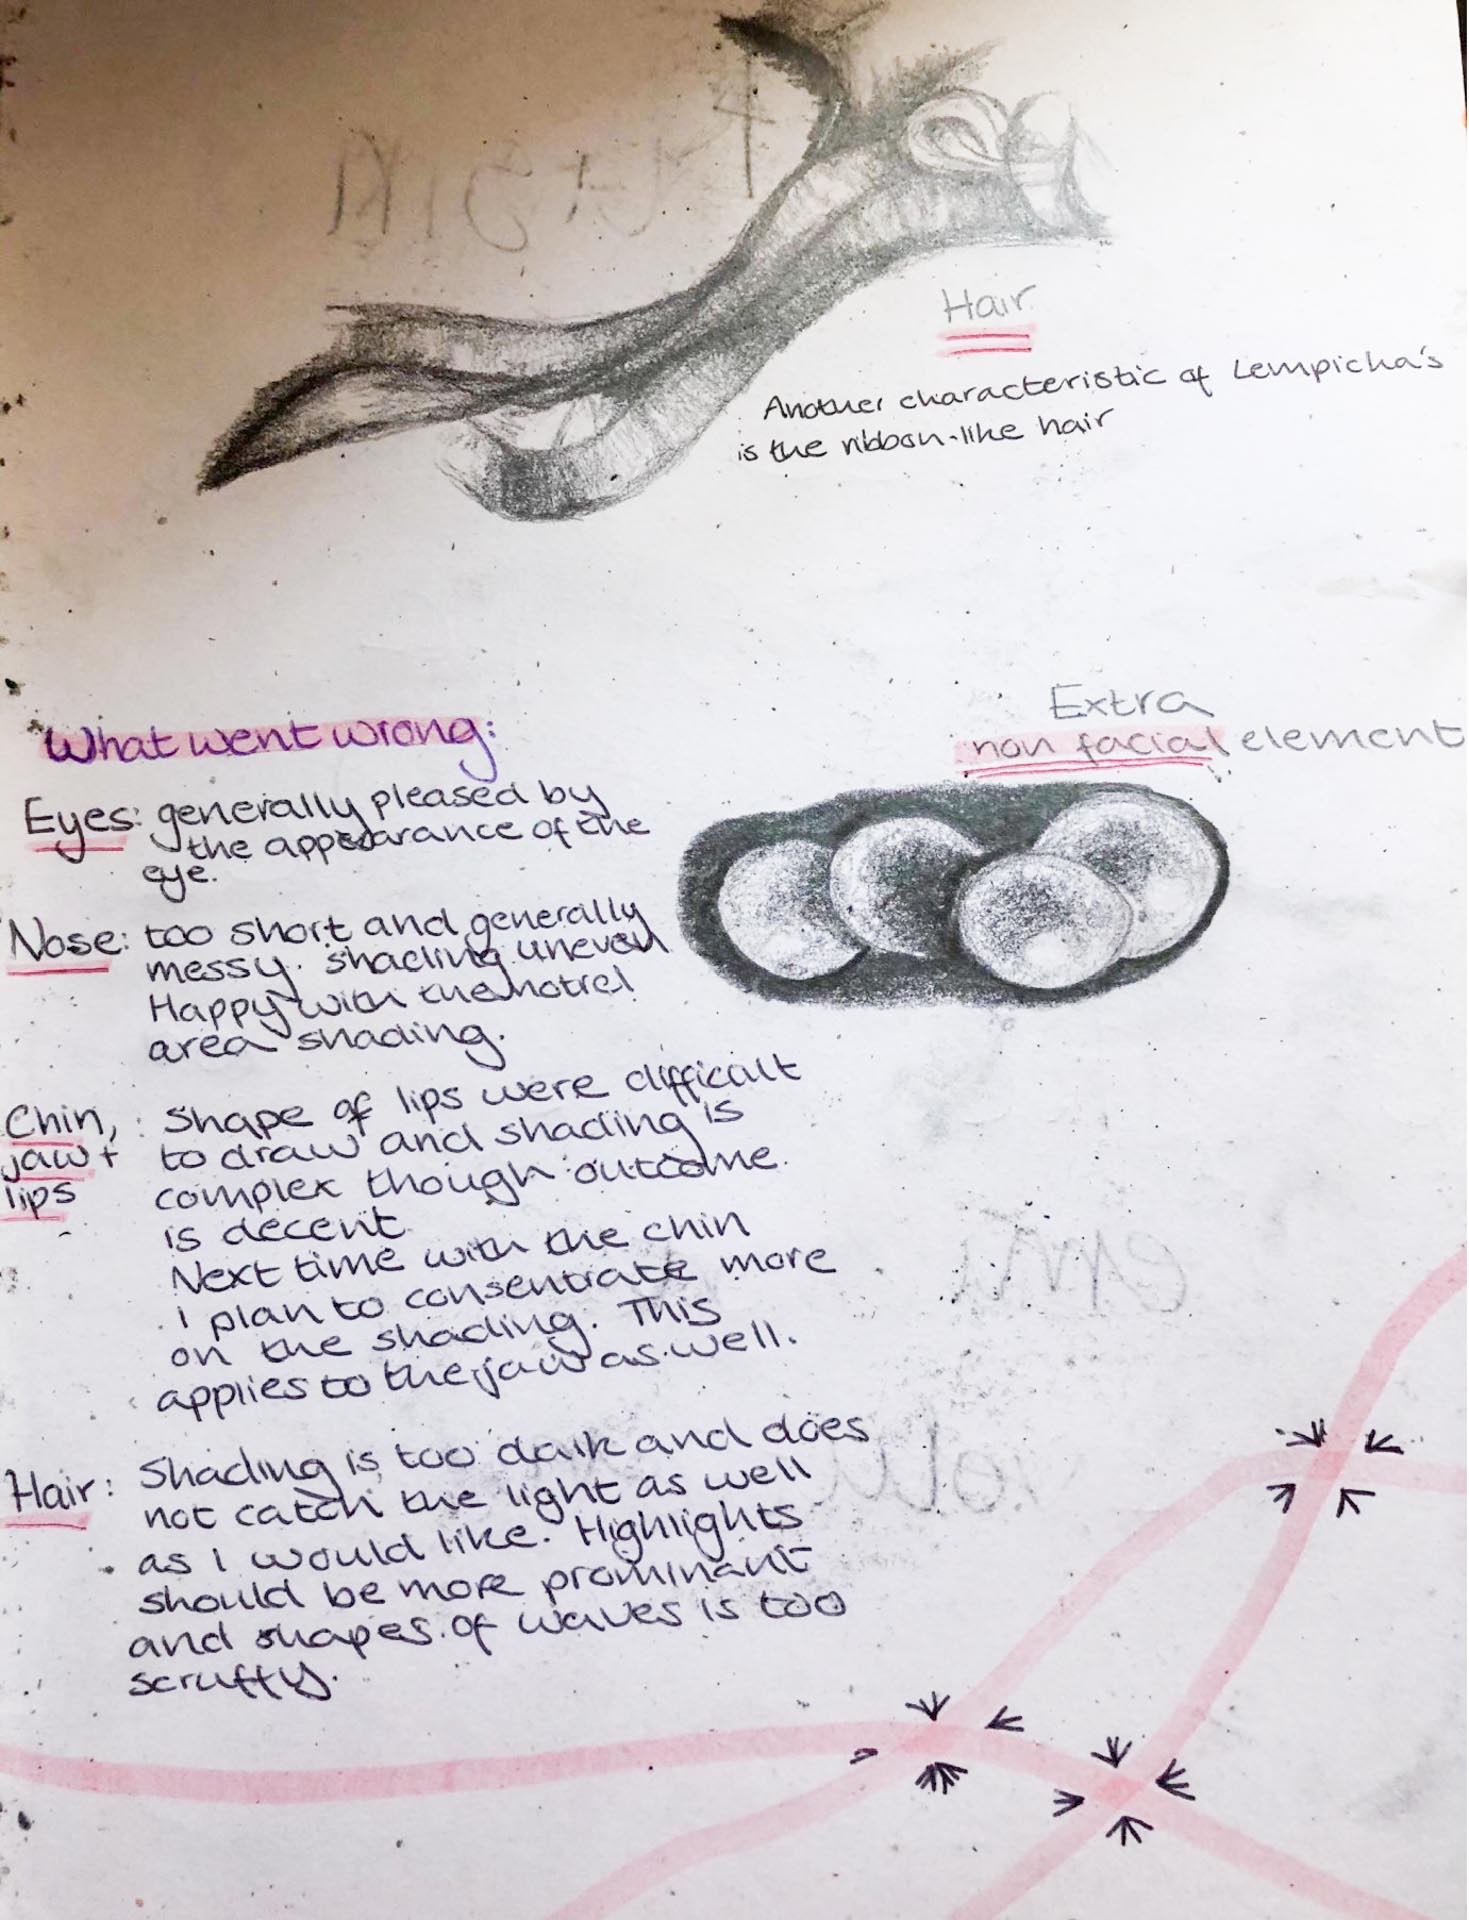 Hair
Another characteristic of Lempicha's
is the ribbon-like hair
Extra
non facial element
What went wrong:
Eyes: generally pleased by
the appearance of the
eye.
Nose: too short and generally
messy. shading uneven
Happy with the notrel
area shading.
Chin, : Shape of lips were difficult
jaw + to draw and shading is
lips complex though outcome.
is decent
Next time with the chin
I plan to consentrate more
on the shading. This
applies to the jaw as well.
Hair: Shading is too dark and does
not catch the light as well
as I would like. Highlights
should be more prominant
and shapes of waves is too
scruffy.